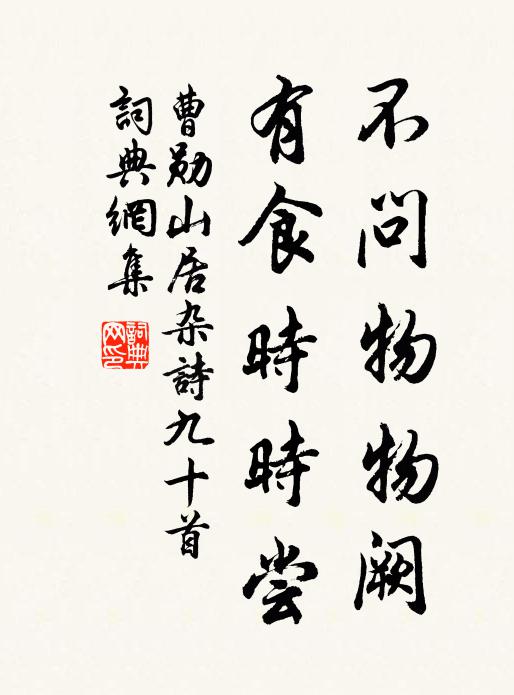 不問物物闕
有食時時尝
曹勛山居杂詩九十首
詞典網集
詞典网印